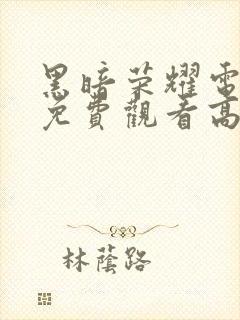 黑暗荣耀電
免費觀看高
林蔭路